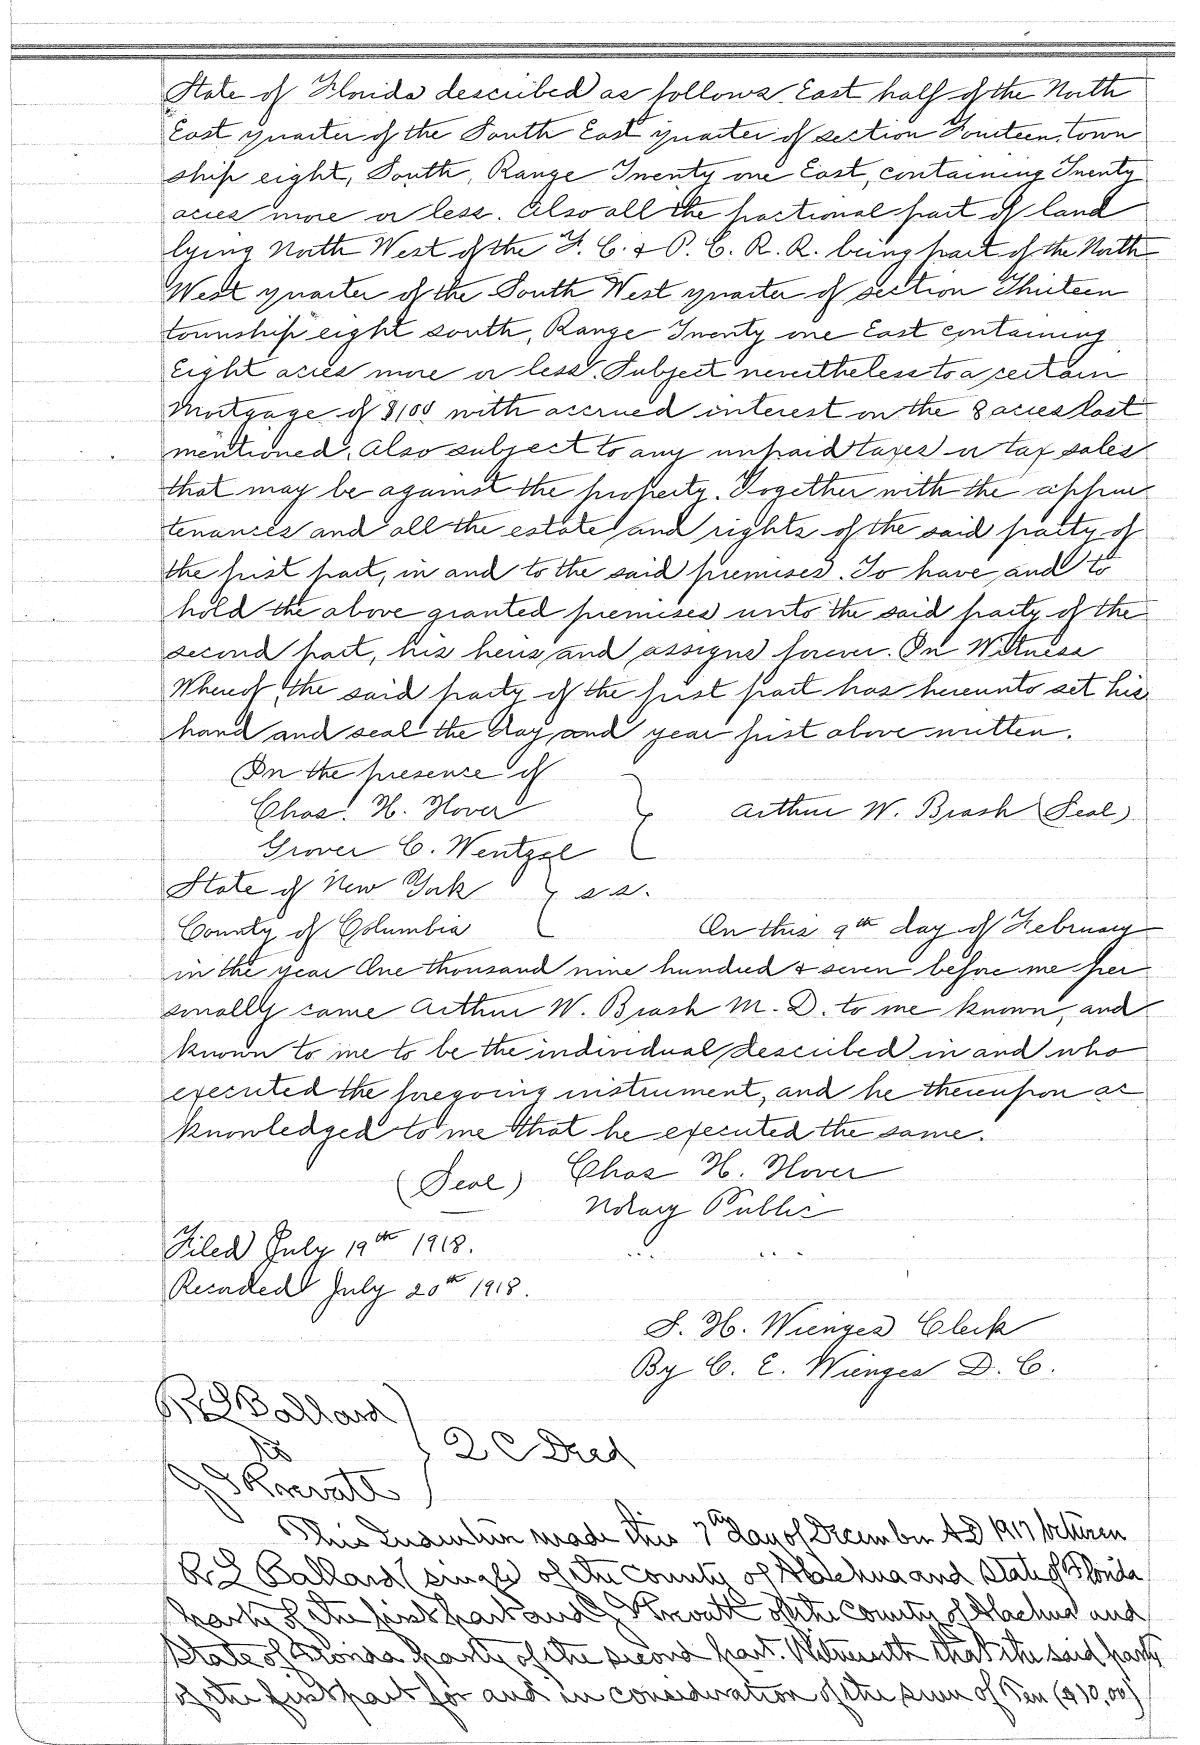 State of Florida described as follows. East half of the North
East quarter of the South East quarter of section Fourteen, town
ship eight, South, Range Twenty one East, containing Twenty
acres more or less. Also all the fractional part of land
lying North West of the F. C. & P. C. R. R. being part of the North
West quarter of the South West quarter of section Thirteen
township eight south, Range Twenty one East containing
Eight acres more or less. Subject nevertheless to a certain
Mortgage of $100 with accrued interest on the 8 acres last
mentioned. Also subject to any unpaid taxes or tax sales
that may be against the property. Together with the appur
tenances and all the estate and rights of the said party of
the first part, in and to the said premises. To have and to
hold the above granted premises unto the said party of the
second part, his heirs and assigns forever. In Witness
Whereof, the said party of the first part has hereunto set his
hand and seal the day and year first above written.
In the presence of
Chas. H. Hover } Arthur W. Brash (Seal)
Grover C. Wentzel
State of New York } s s.
County of Columbia On this 9th day of February
in the year One thousand nine hundred & seven before me per
sonally came Arthur W. Brash M. D. to me known, and
known to me to be the individual described in and who
executed the foregoing instrument, and he thereupon ac
knowledged to me that he executed the same.
(Seal) Chas H. Hover
Notary Public
Filed July 19th 1918.
Recorded July 20th 1918.
S. H. Wienges Clerk
By C. E. Wienges D. C.
R L Ballard
to } Q C Deed
J S Prevatt
This Indenture made this 7th day of December AD 1917 between
R L Ballard (single) of the County of Alachua and State of Florida
party of the first part and J S Prevatt of the County of Alachua and
State of Florida party of the second part. Witnesseth that the said party
of the first part for and in consideration of the sum of Ten ($10,00)